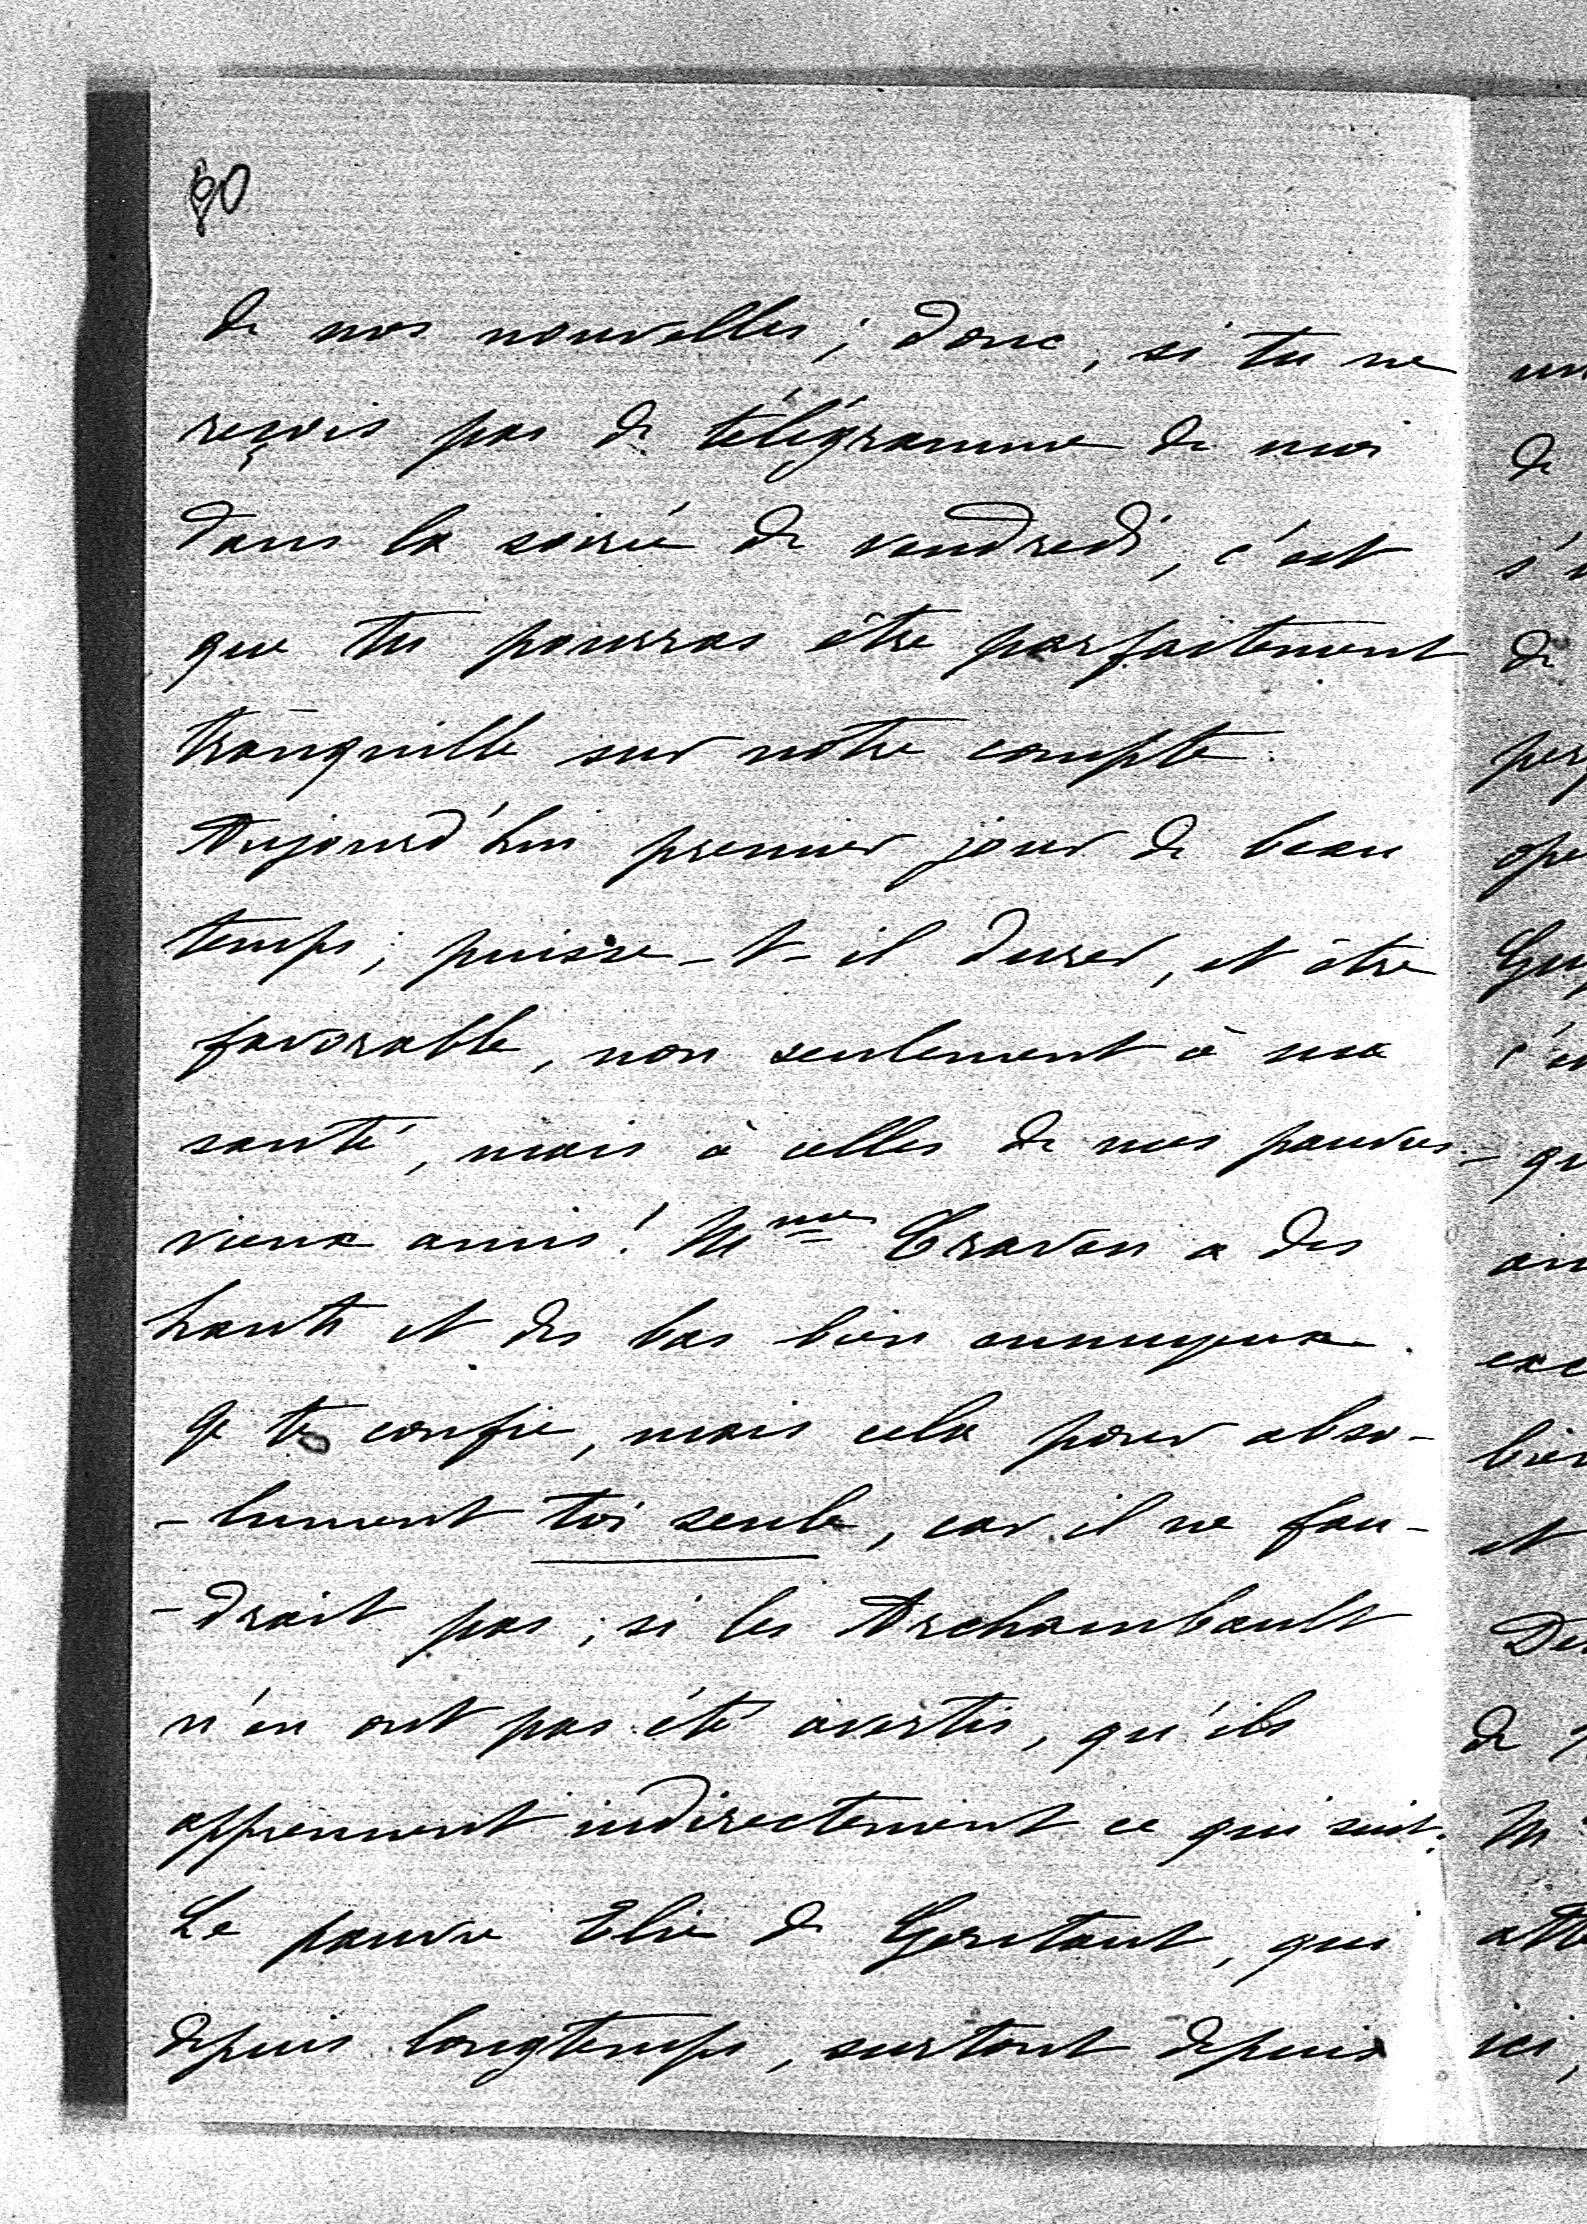 90
de nos nouvelles ; donc, si tu ne
reçois pas de télégramme de moi
dans la soirée de vendredi, c'est
que tu pourras être parfaitement
tranquille sur notre compte.
Aujourd'hui premier jour de beau
temps ; puisse-t-il durer, et être
favorable, non seulement à ma
santé, mais à celles de nos pauvres
vieux amis ! Mme Craven a des
hauts et des bas bien ennuyeux.
Je te confie, mais cela pour abso-
-lument toi seule, car il ne fau-
-drait pas, si les Archambault
n'en ont pas été avertis, qu'ils
apprennent indirectement ce qui suit.
Le pauvre Elie de Gontaut, qui
depuis longtemps, surtout depuis